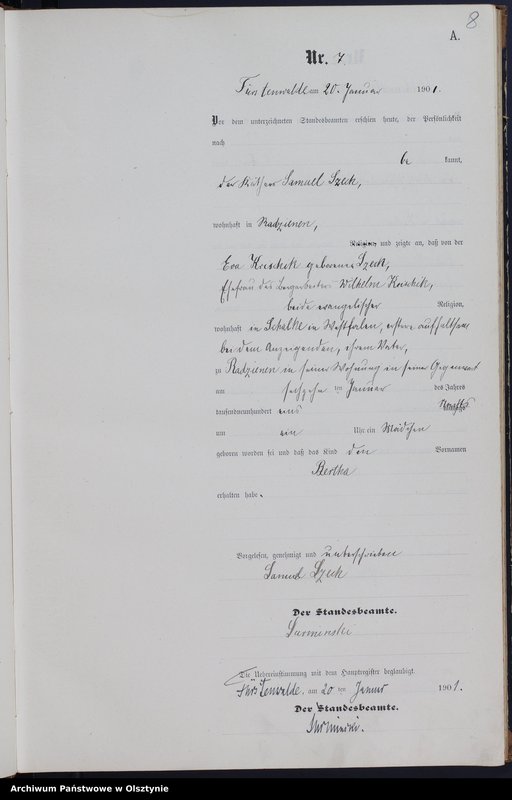 8
A.
Nr. 7
Fürstenwalde am 20. Januar 1901.
Vor dem unterzeichneten Standesbeamten erschien heute, der Persönlichkeit
nach
be kannt,
der Käthner Samuel Szech,
wohnhaft in Radzienen,
Religion, und zeigte an, daß von der
Eva geborenen Szech,
Ehefrau des Bergarbeiters Wilhelm
beide evangelischer Religion,
wohnhaft in Schalke in Westfalen, erstere aufhaltsam
bei dem Anzeigenden, ihrem Vater,
zu Radzienen in seiner Wohnung in seiner Gegenwart
am sechzehn ten Januar des Jahres
tausendneunhundert eins Nachts
um ein Uhr ein Mädchen
geboren worden sei und daß das Kind den Vornamen
Bertha
erhalten habe.
Vorgelesen, genehmigt und unterschrieben
Samuel Szech
Der Standesbeamte.
Die Uebereinstimmung mit dem Hauptregister beglaubigt.
Fürstenwalde. am 20 ten Januar 1901.
Der Standesbeamte.
Archiwum Państwowe w Olsztynie